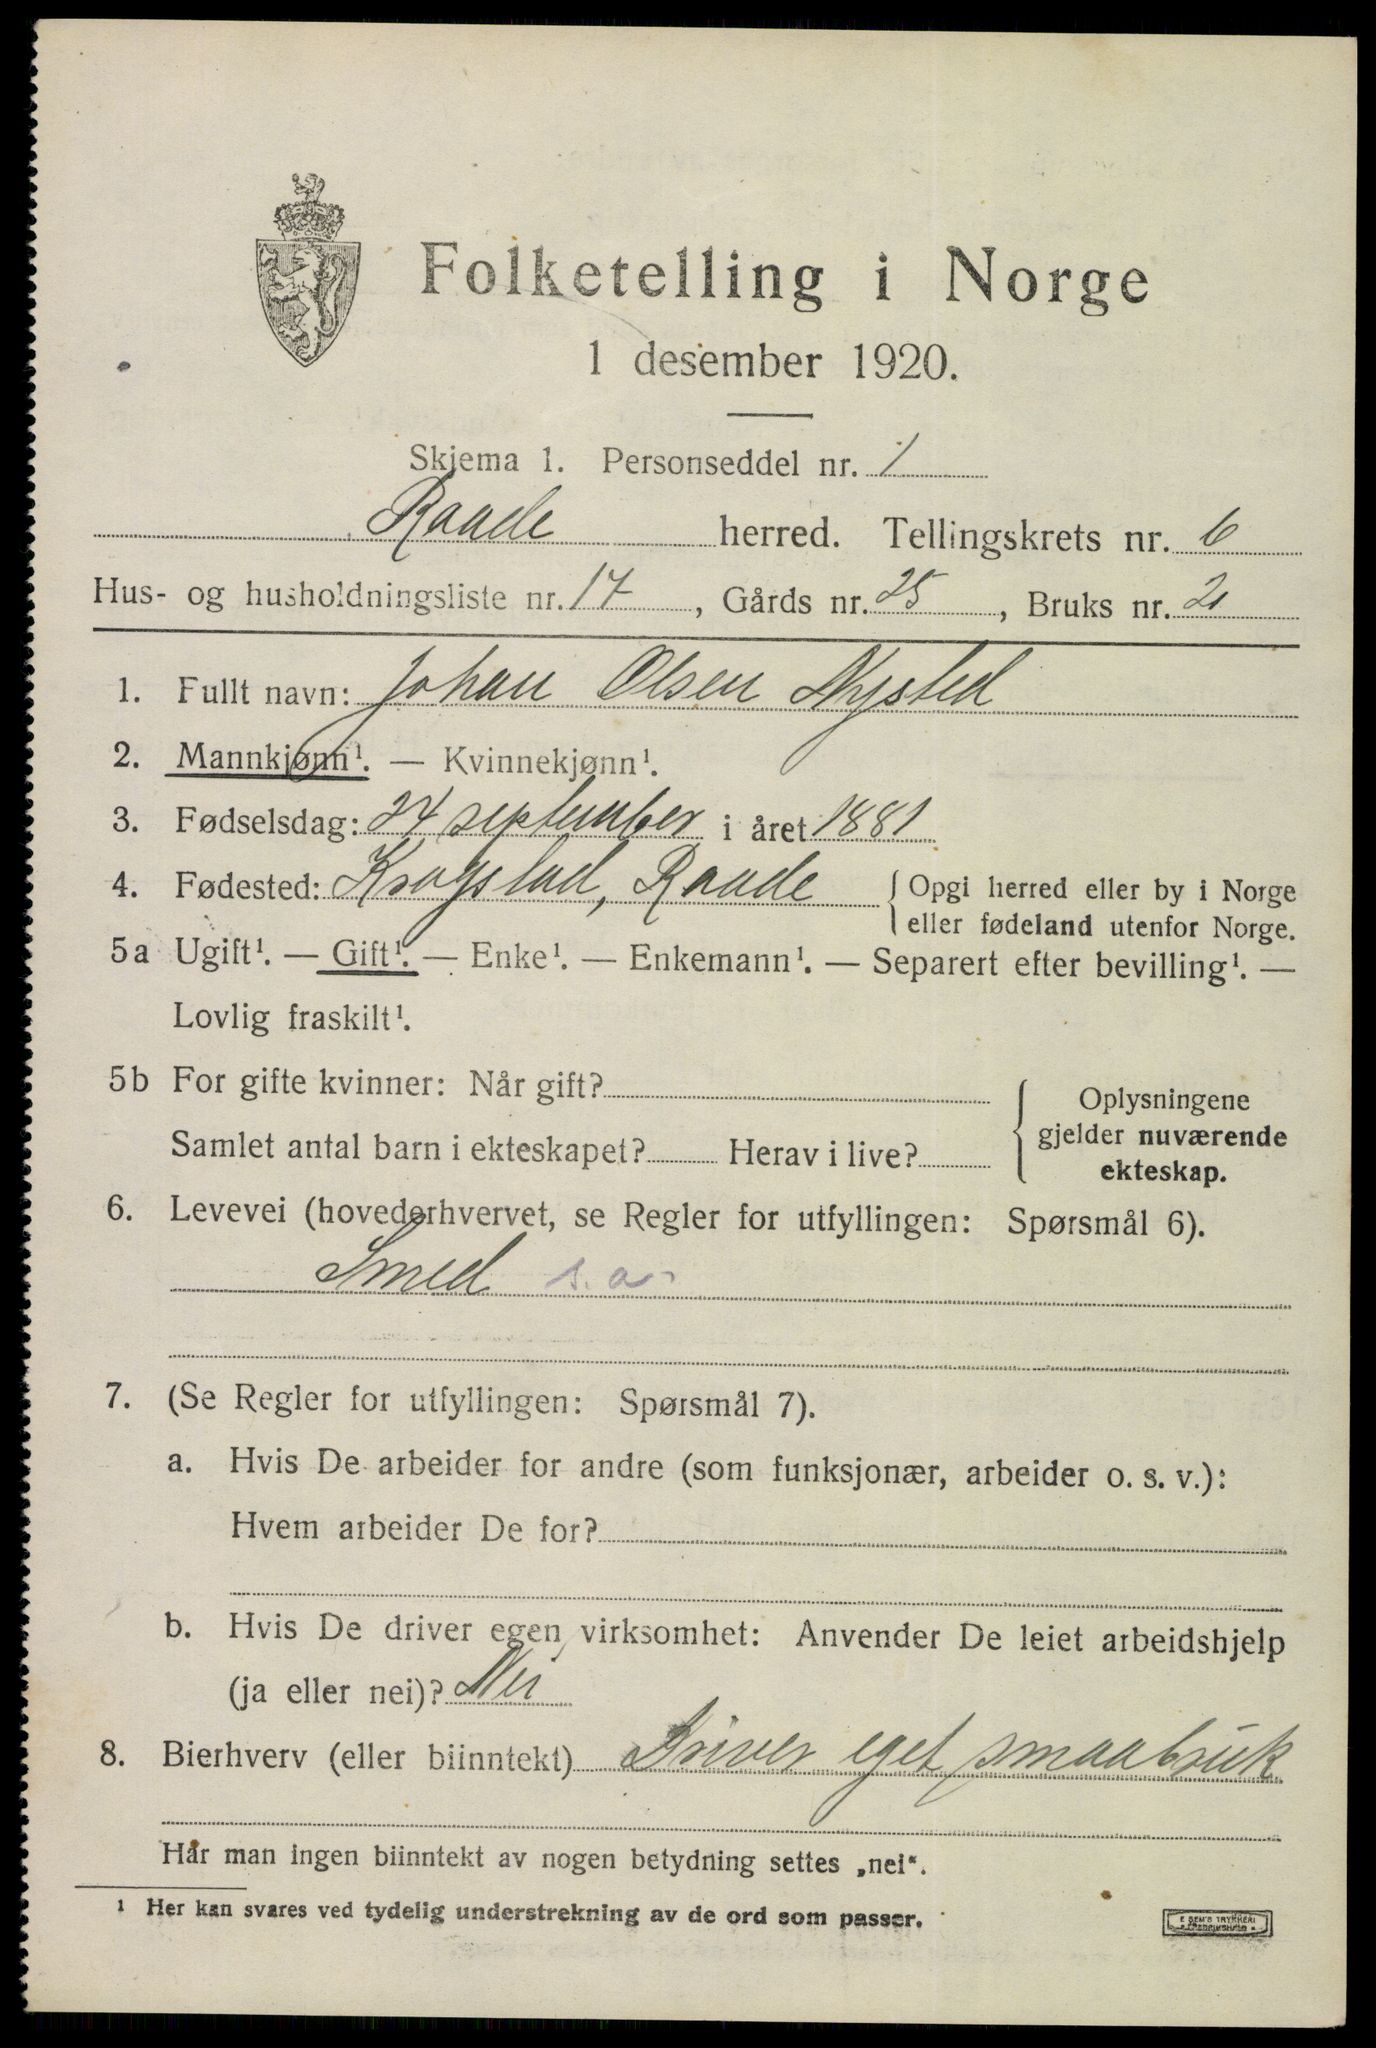 Folketelling i Norge
1 desember 1920.
Skjema 1. Personseddel nr. 1
Raade herred. Tellingskrets nr. 6
Hus- og husholdningsliste nr. 17, Gårds nr. 25, Bruks nr. 2
1. Fullt navn: Johan Olsen Nysted
2. Mannkjønn¹. — Kvinnekjønn¹.
3. Fødselsdag: 24 september i året 1881
4. Fødested: Krogstad, Raade { Opgi herred eller by i Norge
eller fødeland utenfor Norge.
5a Ugift¹. — Gift¹. — Enke¹. — Enkemann¹. — Separert efter bevilling¹. —
Lovlig fraskilt¹.
5b For gifte kvinner: Når gift?
Samlet antal barn i ekteskapet? Herav i live?
Oplysningene
gjelder nuværende
ekteskap.
6. Levevei (hovederhvervet, se Regler for utfyllingen: Spørsmål 6).
Smed s.a.
7. (Se Regler for utfyllingen: Spørsmål 7).
a. Hvis De arbeider for andre (som funksjonær, arbeider o. s. v.):
Hvem arbeider De for?
b. Hvis De driver egen virksomhet: Anvender De leiet arbeidshjelp
(ja eller nei)? Nei
8. Bierhverv (eller biinntekt) Driver eget smaabruk
Har man ingen biinntekt av nogen betydning settes „nei“.
¹ Her kan svares ved tydelig understrekning av de ord som passer.
E SEM'S TRYKKERI
FREDRIKSHALD